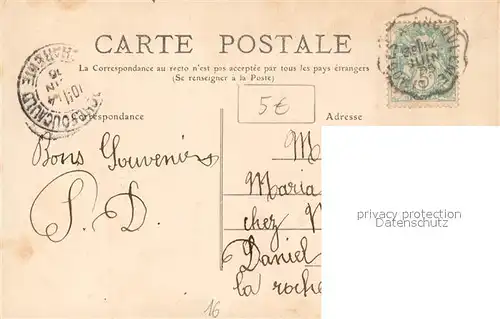 CARTE POSTALE
La Correspondance au recto n'est pas acceptée par tous les pays étrangers
(Se renseigner à la Poste)
5€
Correspondance
Adresse
Bons Souvenirs
S. D.
M
Maria
chez
Daniel
la roche
privacy protection
watermark
16